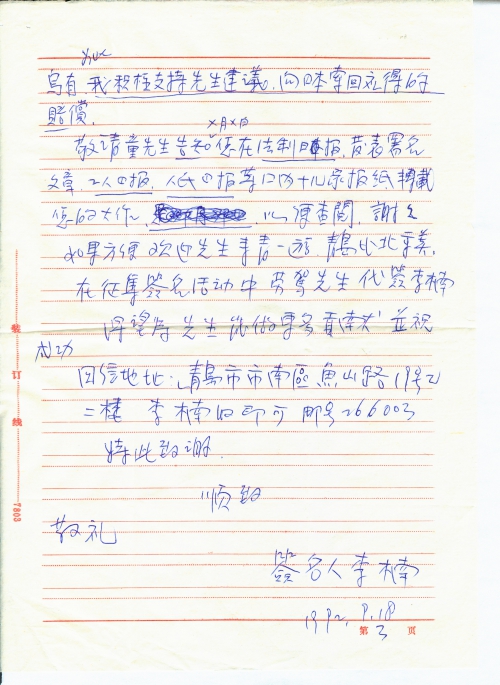 乌有 我积极支持先生建议,向日本索回应得的
赔偿.
×月×日
敬请童先生告知您在法制日报,发表署名
文章,工人日报,人民日报等口内十几家报纸转载
您的大作, 以便查阅,謝々
如果方便欢迎先生来青一游.青島比北京美.
在征集签名活动中劳驾先生代簽李楠
深望为先生能做更多貢献 並祝
成功
回信地址.青島市市南區魚山路19号乙
二楼 李楠收即可 邮号266003
特此致谢.
順致
敬礼
簽名人李楠
1992.9.18
第3页
装订线
7803